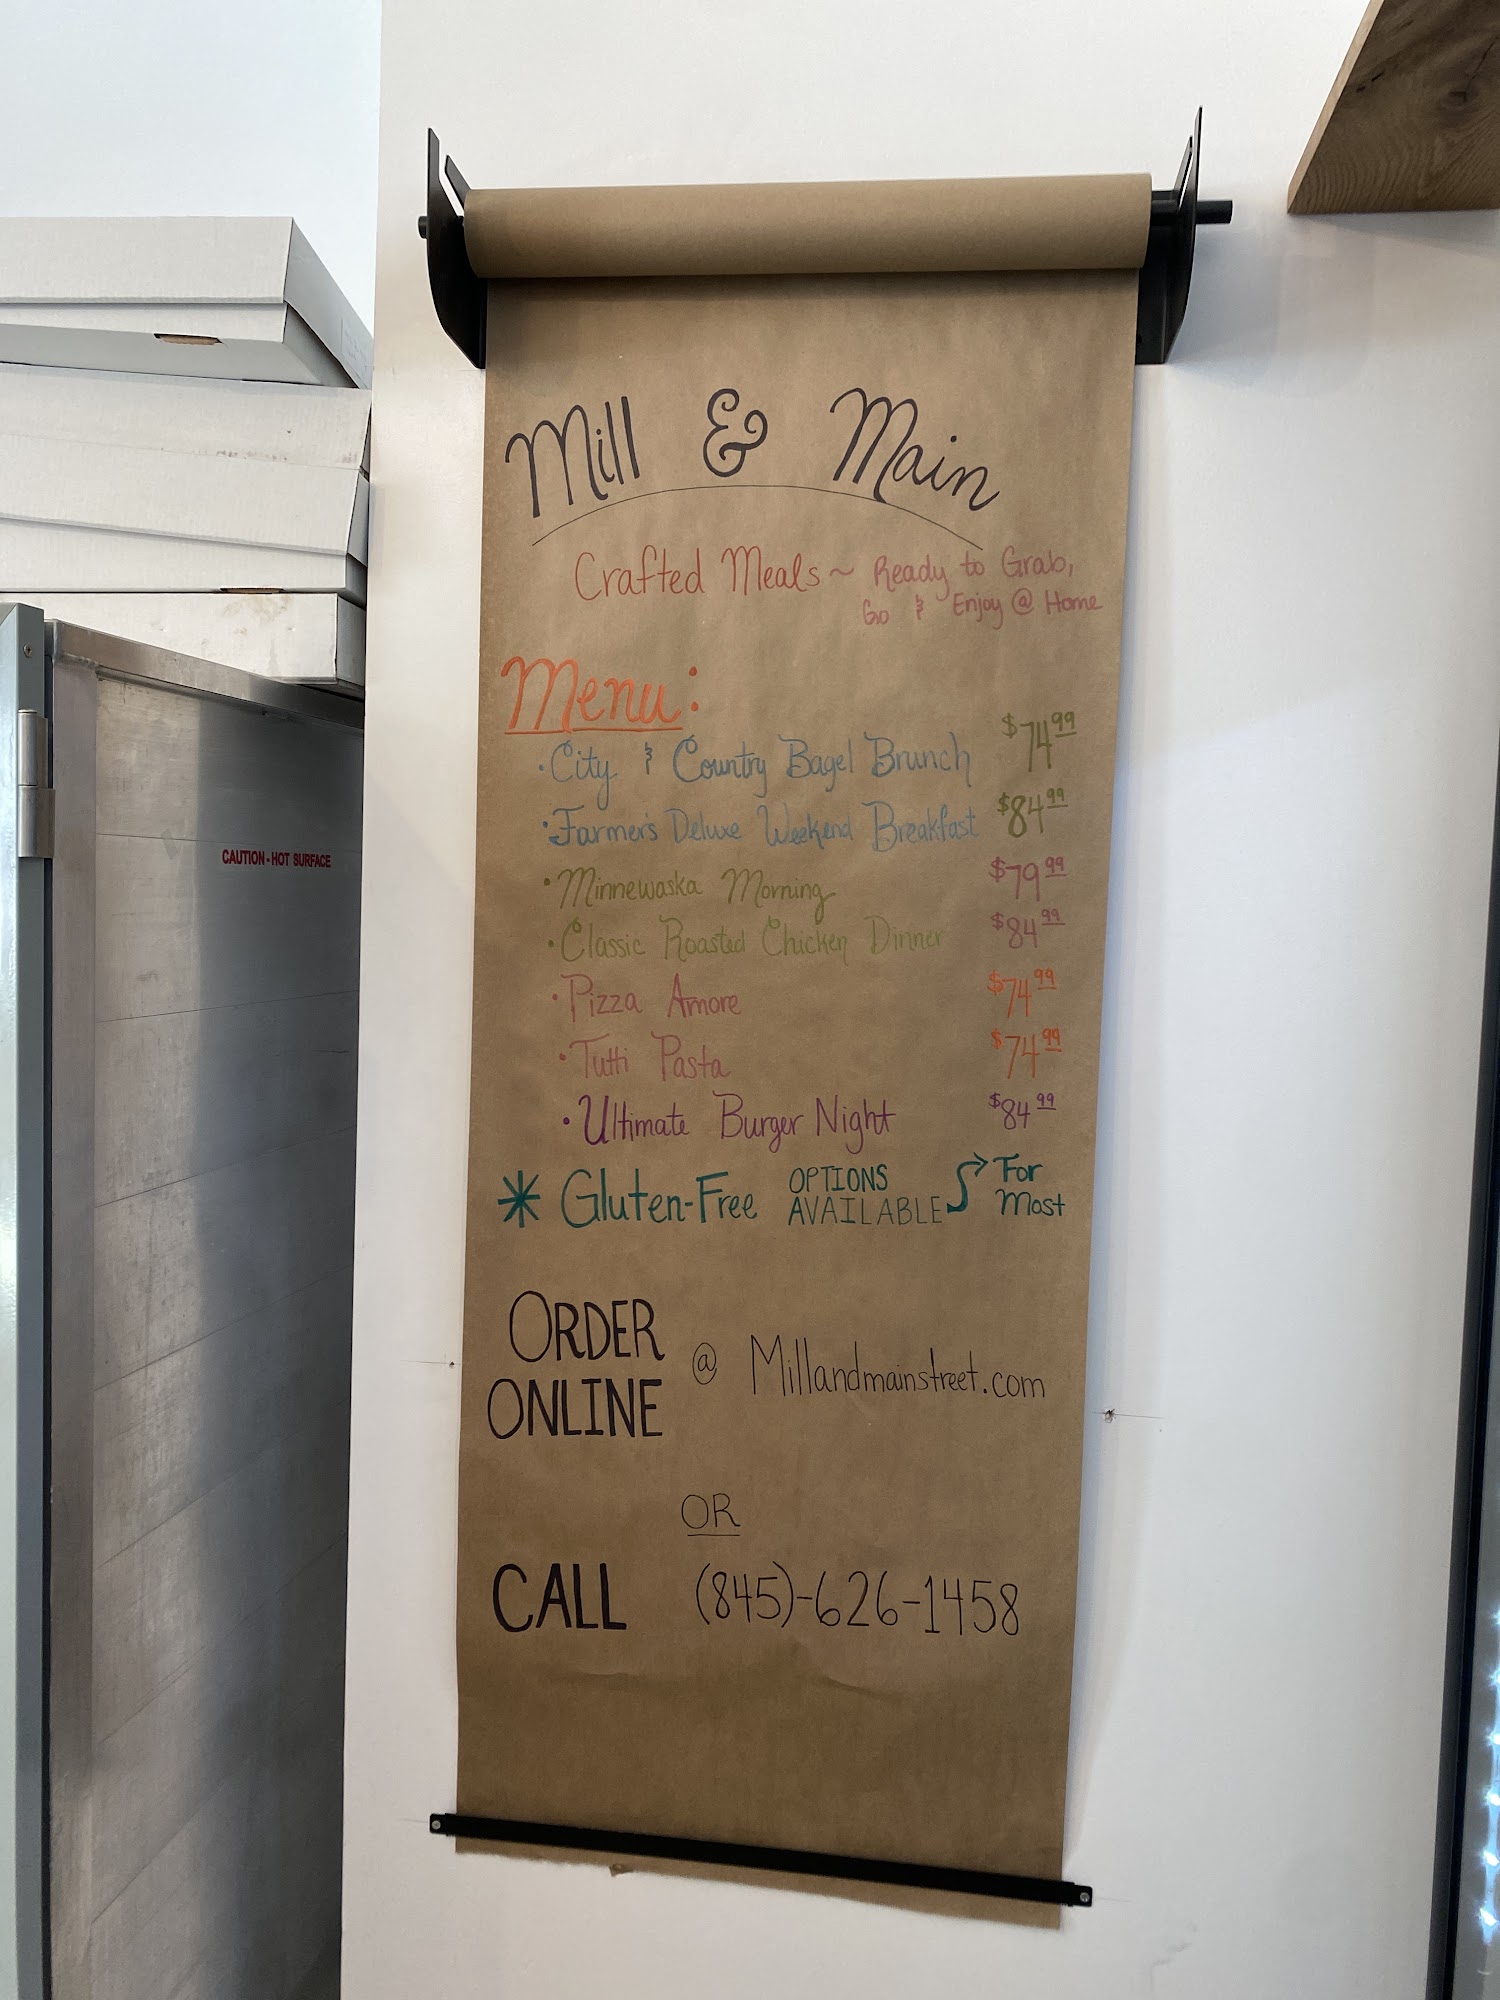 Mill & Main
Crafted Meals ~ Ready to Grab,
Go & Enjoy @ Home
Menu:
• City & Country Bagel Brunch $74.99
• Farmer's Deluxe Weekend Breakfast $84.99
• Minnewaska Morning $79.99
• Classic Roasted Chicken Dinner $84.99
• Pizza Amore $74.99
• Tutti Pasta $74.99
• Ultimate Burger Night $84.99
* Gluten-Free OPTIONS AVAILABLE For Most
ORDER ONLINE @ Millandmainstreet.com
OR
CALL (845)-626-1458
CAUTION - HOT SURFACE